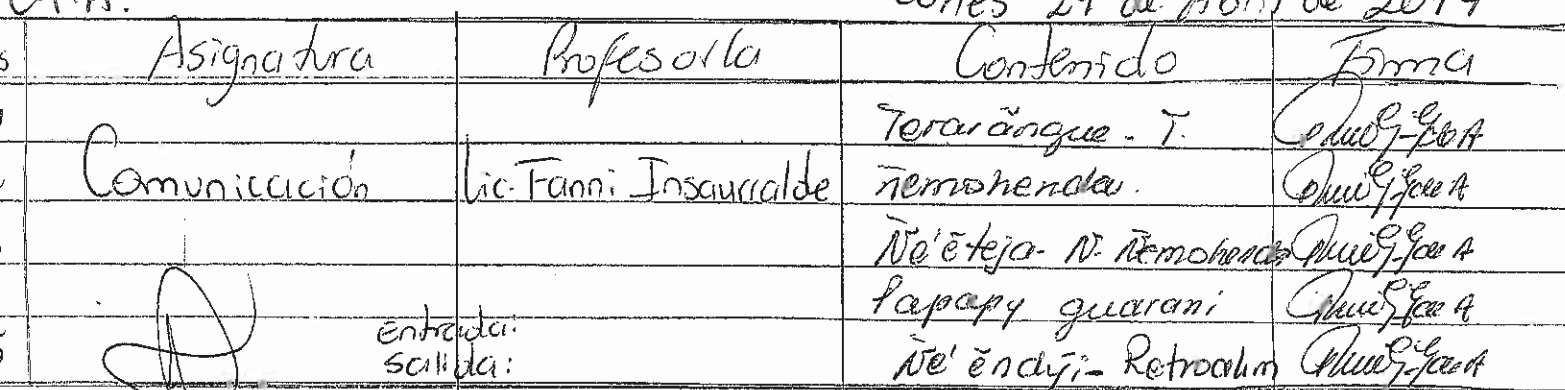 de 2014
Asignatura Profesor/a Contenido Firma
Terarãngue - T.
Comunicación Lic. Fanni Insaurralde ñemohenda.
Ñe'ẽteja - N. Ñemohenda
Papapy guarani
Entrada:
Salida: Ñe'ẽndýi - Retroalim